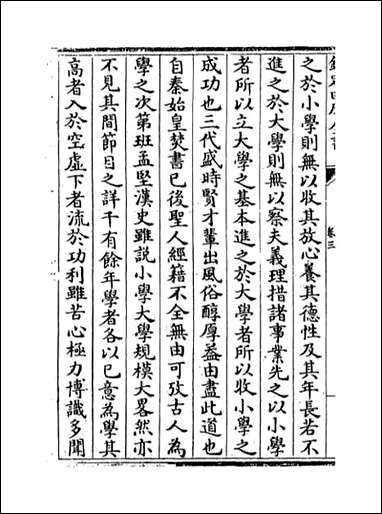 欽定四庫全書
卷三
之於小學則無以收其放心養其德性及其年長若不
進之於大學則無以察夫義理措諸事業先之以小學
者所以立大學之基本進之於大學者所以收小學之
成功也三代盛時賢才輩出風俗醇厚葢由盡此道也
自秦始皇焚書已後聖人經籍不全無由可攷古人為
學之次第班孟堅漢史雖說小學大學規模大畧然亦
不見其間節目之詳千有餘年學者各以已意為學其
高者入於空虛下者流於功利雖苦心極力博識多聞